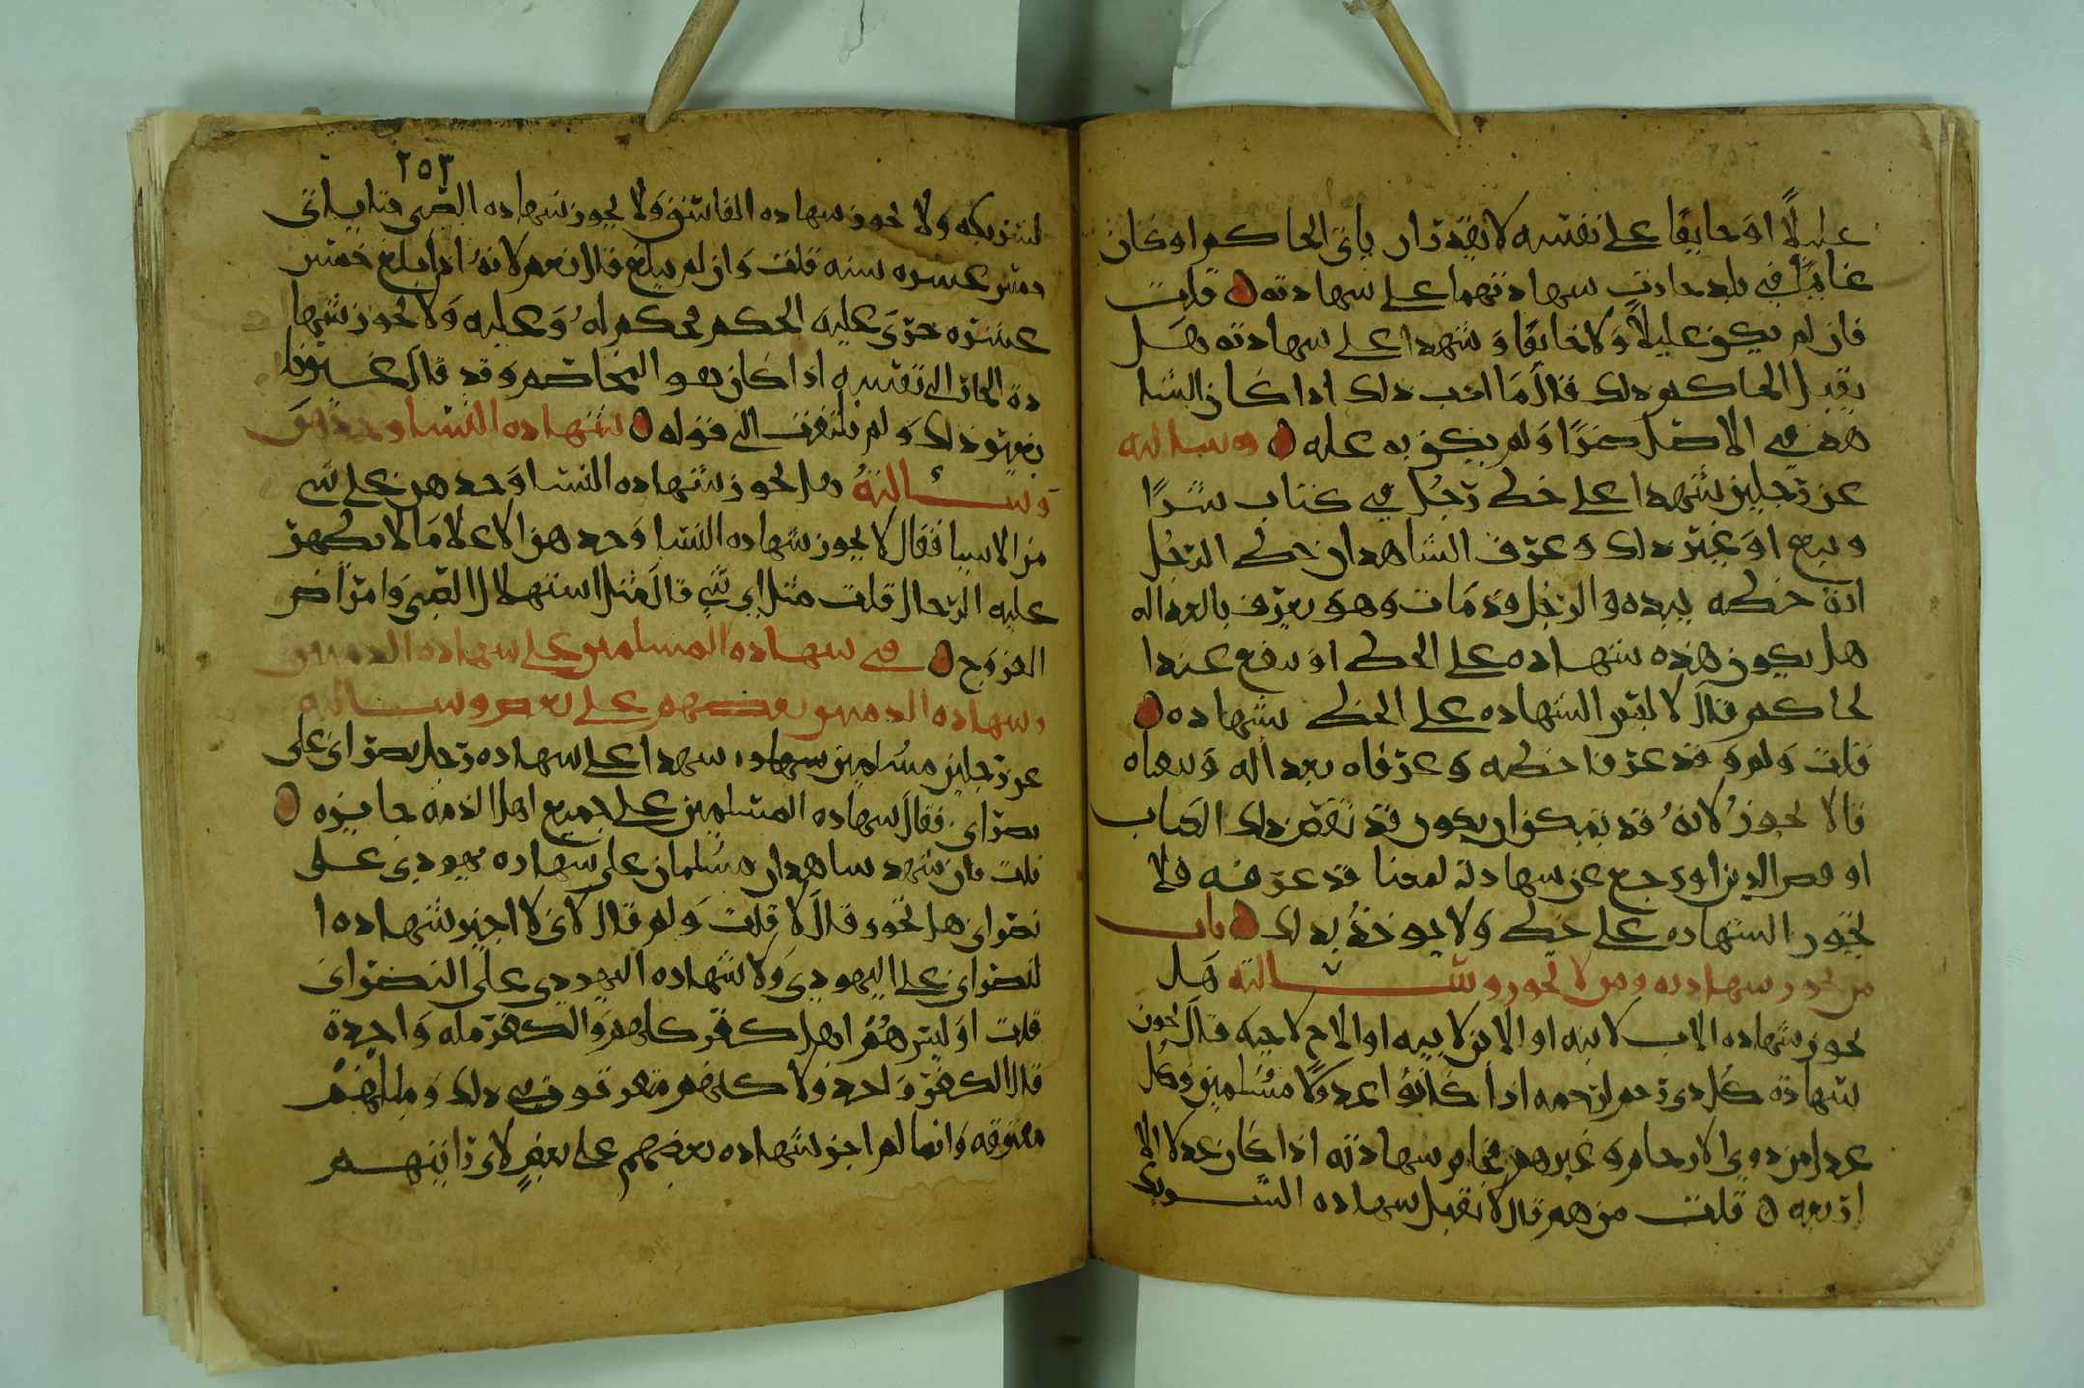 عليلًا او خايفًا على نفسه لا يقدر ان ياتى الحاكم او كان
غايبًا في بلد جازت شهادتهما على شهادته قلت
فان لم يكون عليلًا ولا خايفًا وشهدا على شهادته هل
يقبل الحاكم ذلك قال ما احب ذلك اذا كان الشا
هد في الاصل حضرًا ولم يكون به عله وسالته
عن رجلين شهدا على خط رجل في كتاب شرًا
وبيع او غير ذلك وعرف الشاهدان خط الرجل
انه خطه بيده والرجل قد مات وهو يعرف بالعداله
هل يكون هذه شهاده على الخط او ينفع عندا
لحاكم قال لا ليقر الشهاده على الخط شهاده
قلت ولم وقد عرفا خطه وعرفاه بعداله
قال لا يجوز لانه قد يمكن ان يكون قد نقض ذلك الكتاب
او قضى الدين او رجع عن شهادته لمعنا قد عرفه فلا
تجوز الشهاده على خط ولا يوخذ بذلك باب
من تجوز شهادته ومن لا تجوز وسالته هل
تجوز شهاده الاب لابنه او الابن لابيه او الاخ لاخيه قال تجوز
شهادة كل ذي رحم لرحمه اذا كانوا عدولًا مسلمين وكل
عدل من ذوي الارحام وغيرهم شهادته اذا كان عدلا الا
اربعه قلت من هم قال لا تقبل شهاده الشريك
٢٥٣
لشريكه ولا تجوز شهاده الفاسق ولا يجوز شهاده الصبي حتى ياتى
خمس عشره سنه قلت وان لم يبلغ قال نعم لانه اذا بلغ خمس
عشره جرى عليه الحكم فحكم له وعليه ولا تجوز شها
دة الجار الى نفسه اذا كان هو المخاصم وقد قال غيرنا
بغير ذلك ولم نلتفت الى قوله شهاده النسا وحدهن
وسالته هل تجوز شهاده النسا وحدهن على شي
من الاشيا فقال لا يجوز شهاده النسا وحدهن الا على ما لا يظهر
عليه الرجال قلت مثل اي شي قال مثل استهلال الصبي وامراض
الفروج في شهاده المسلمين على شهاده الذميين
وشهاده الذميين بعضهم على بعض وسالته
عن رجلين مسلمين شهدا على شهاده رجل نصراني على
نصراني فقال شهاده المسلمين على جميع اهل الذمه جايزه
قلت فان شهد شاهدان مسلمان على شهاده يهودي على
نصراني هل تجوز قال لا قلت ولم قال لاني لا اجيز شهاده ا
لنصراني على اليهودي ولا شهاده اليهودي على النصراني
قلت اوليس هُم اهل كفر كلهم والكفر مله واحدة
قال الكفر واحد ولاكنهم متفرقون في ذلك ومللهم
مفترقه وانما لم اجز شهاده بعضهم على بعضٍ لاني رايتهم